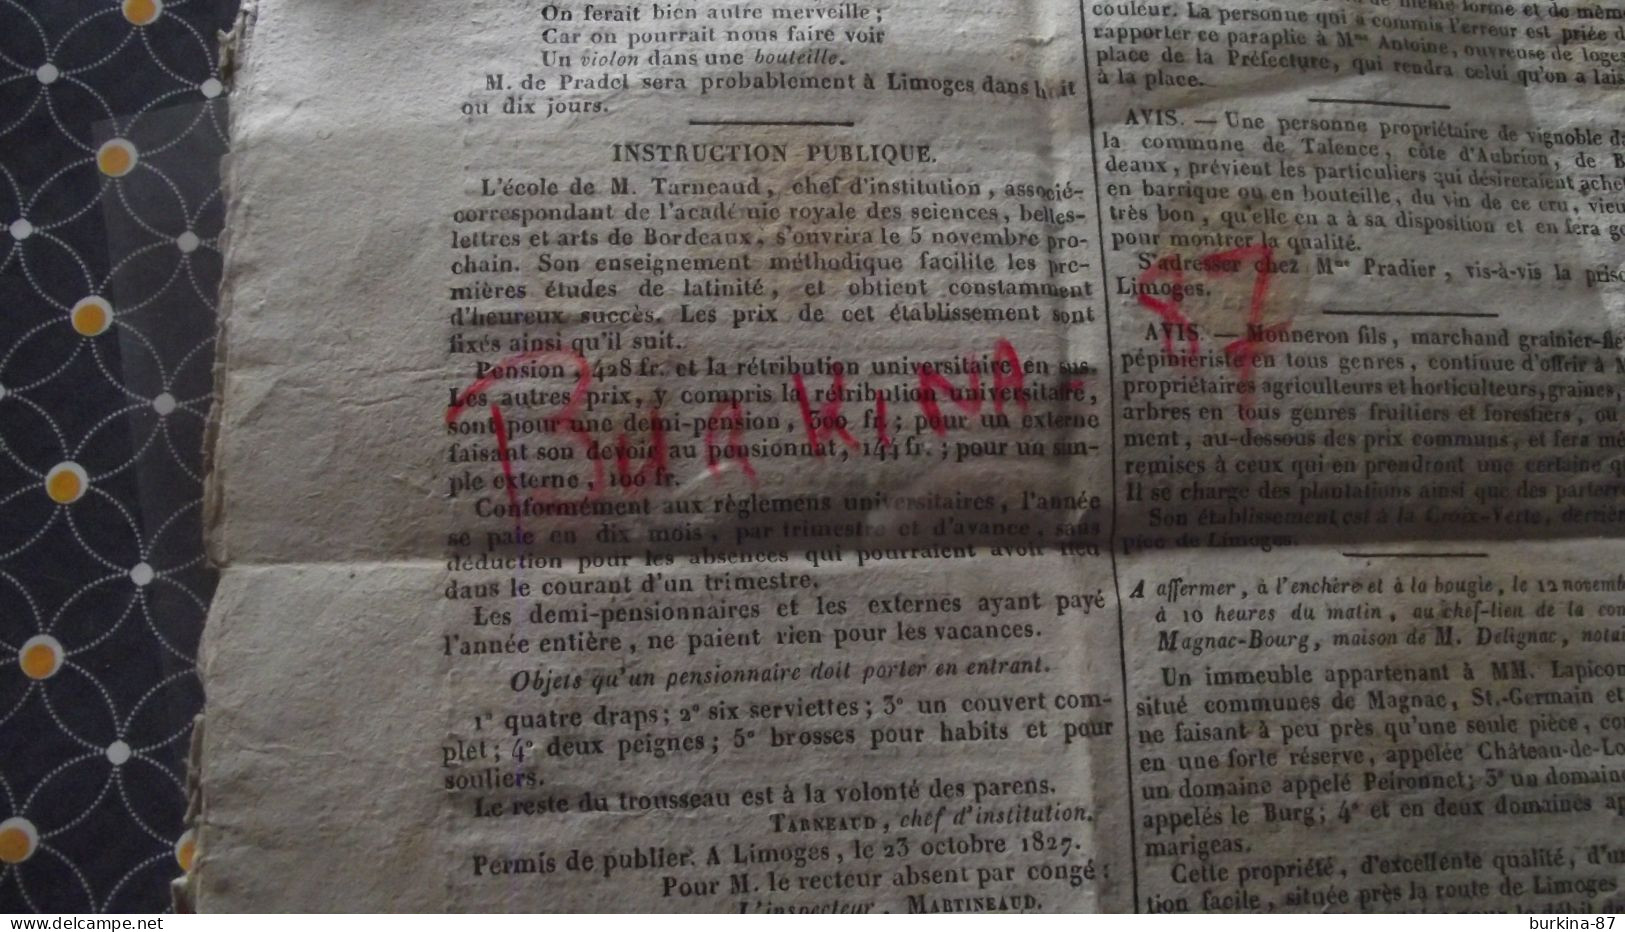 On ferait bien autre merveille ;
Car on pourrait nous faire voir
Un violon dans une bouteille.
M. de Pradel sera probablement à Limoges dans huit
ou dix jours.
INSTRUCTION PUBLIQUE.
L'école de M. Tarneaud, chef d'institution, associé-
correspondant de l'académie royale des sciences, belles-
lettres et arts de Bordeaux, s'ouvrira le 5 novembre pro-
chain. Son enseignement méthodique facilite les pre-
mières études de latinité, et obtient constamment
d'heureux succès. Les prix de cet établissement sont
fixés ainsi qu'il suit.
Pension, 428 fr. et la rétribution universitaire en sus.
Les autres prix, y compris la rétribution universitaire,
sont pour une demi-pension, 300 fr. ; pour un externe
faisant son devoir au pensionnat, 144 fr. ; pour un sim-
ple externe, 100 fr.
Conformément aux règlemens universitaires, l'année
se paie en dix mois, par trimestre et d'avance, sans
déduction pour les absences qui pourraient avoir lieu
dans le courant d'un trimestre.
Les demi-pensionnaires et les externes ayant payé
l'année entière, ne paient rien pour les vacances.
Objets qu'un pensionnaire doit porter en entrant.
1° quatre draps ; 2° six serviettes ; 3° un couvert com-
plet ; 4° deux peignes ; 5° brosses pour habits et pour
souliers.
Le reste du trousseau est à la volonté des parens.
TARNEAUD, chef d'institution.
Permis de publier. A Limoges, le 23 octobre 1827.
Pour M. le recteur absent par congé :
L'inspecteur, MARTINEAUD.
de même forme et de mêm
couleur. La personne qui a commis l'erreur est priée d
rapporter ce parapluie à Mme Antoine, ouvreuse de loges
place de la Préfecture, qui rendra celui qu'on a lais
à la place.
AVIS. — Une personne propriétaire de vignoble d
la commune de Talence, côte d'Aubrion, de B
deaux, prévient les particuliers qui désireraient achet
en barrique ou en bouteille, du vin de ce cru, vieu
très bon, qu'elle en a à sa disposition et en fera go
pour montrer la qualité.
S'adresser chez Mme Pradier, vis-à-vis la priso
Limoges.
AVIS. — Monneron fils, marchand grainier-fle
pépiniériste en tous genres, continue d'offrir à M
propriétaires agriculteurs et horticulteurs, graines,
arbres en tous genres fruitiers et forestiers, ou
ment, au-dessous des prix communs, et fera mê
remises à ceux qui en prendront une certaine q
Il se charge des plantations ainsi que des parterre
Son établissement est à la Croix-Verte, derrièr
pice de Limoges.
A affermer, à l'enchère et à la bougie, le 12 novemb
à 10 heures du matin, au chef-lieu de la com
Magnac-Bourg, maison de M. Delignac, notai
Un immeuble appartenant à MM. Lapicon
situé communes de Magnac, St.-Germain et
ne faisant à peu près qu'une seule pièce, co
en une forte réserve, appelée Château-de-Lo
un domaine appelé Peironnet ; 3° un domaine
appelés le Burg ; 4° et en deux domaines ap
marigeas.
Cette propriété, d'excellente qualité, d'un
tion facile, située près la route de Limoges
BURKINA-87
burkina-87